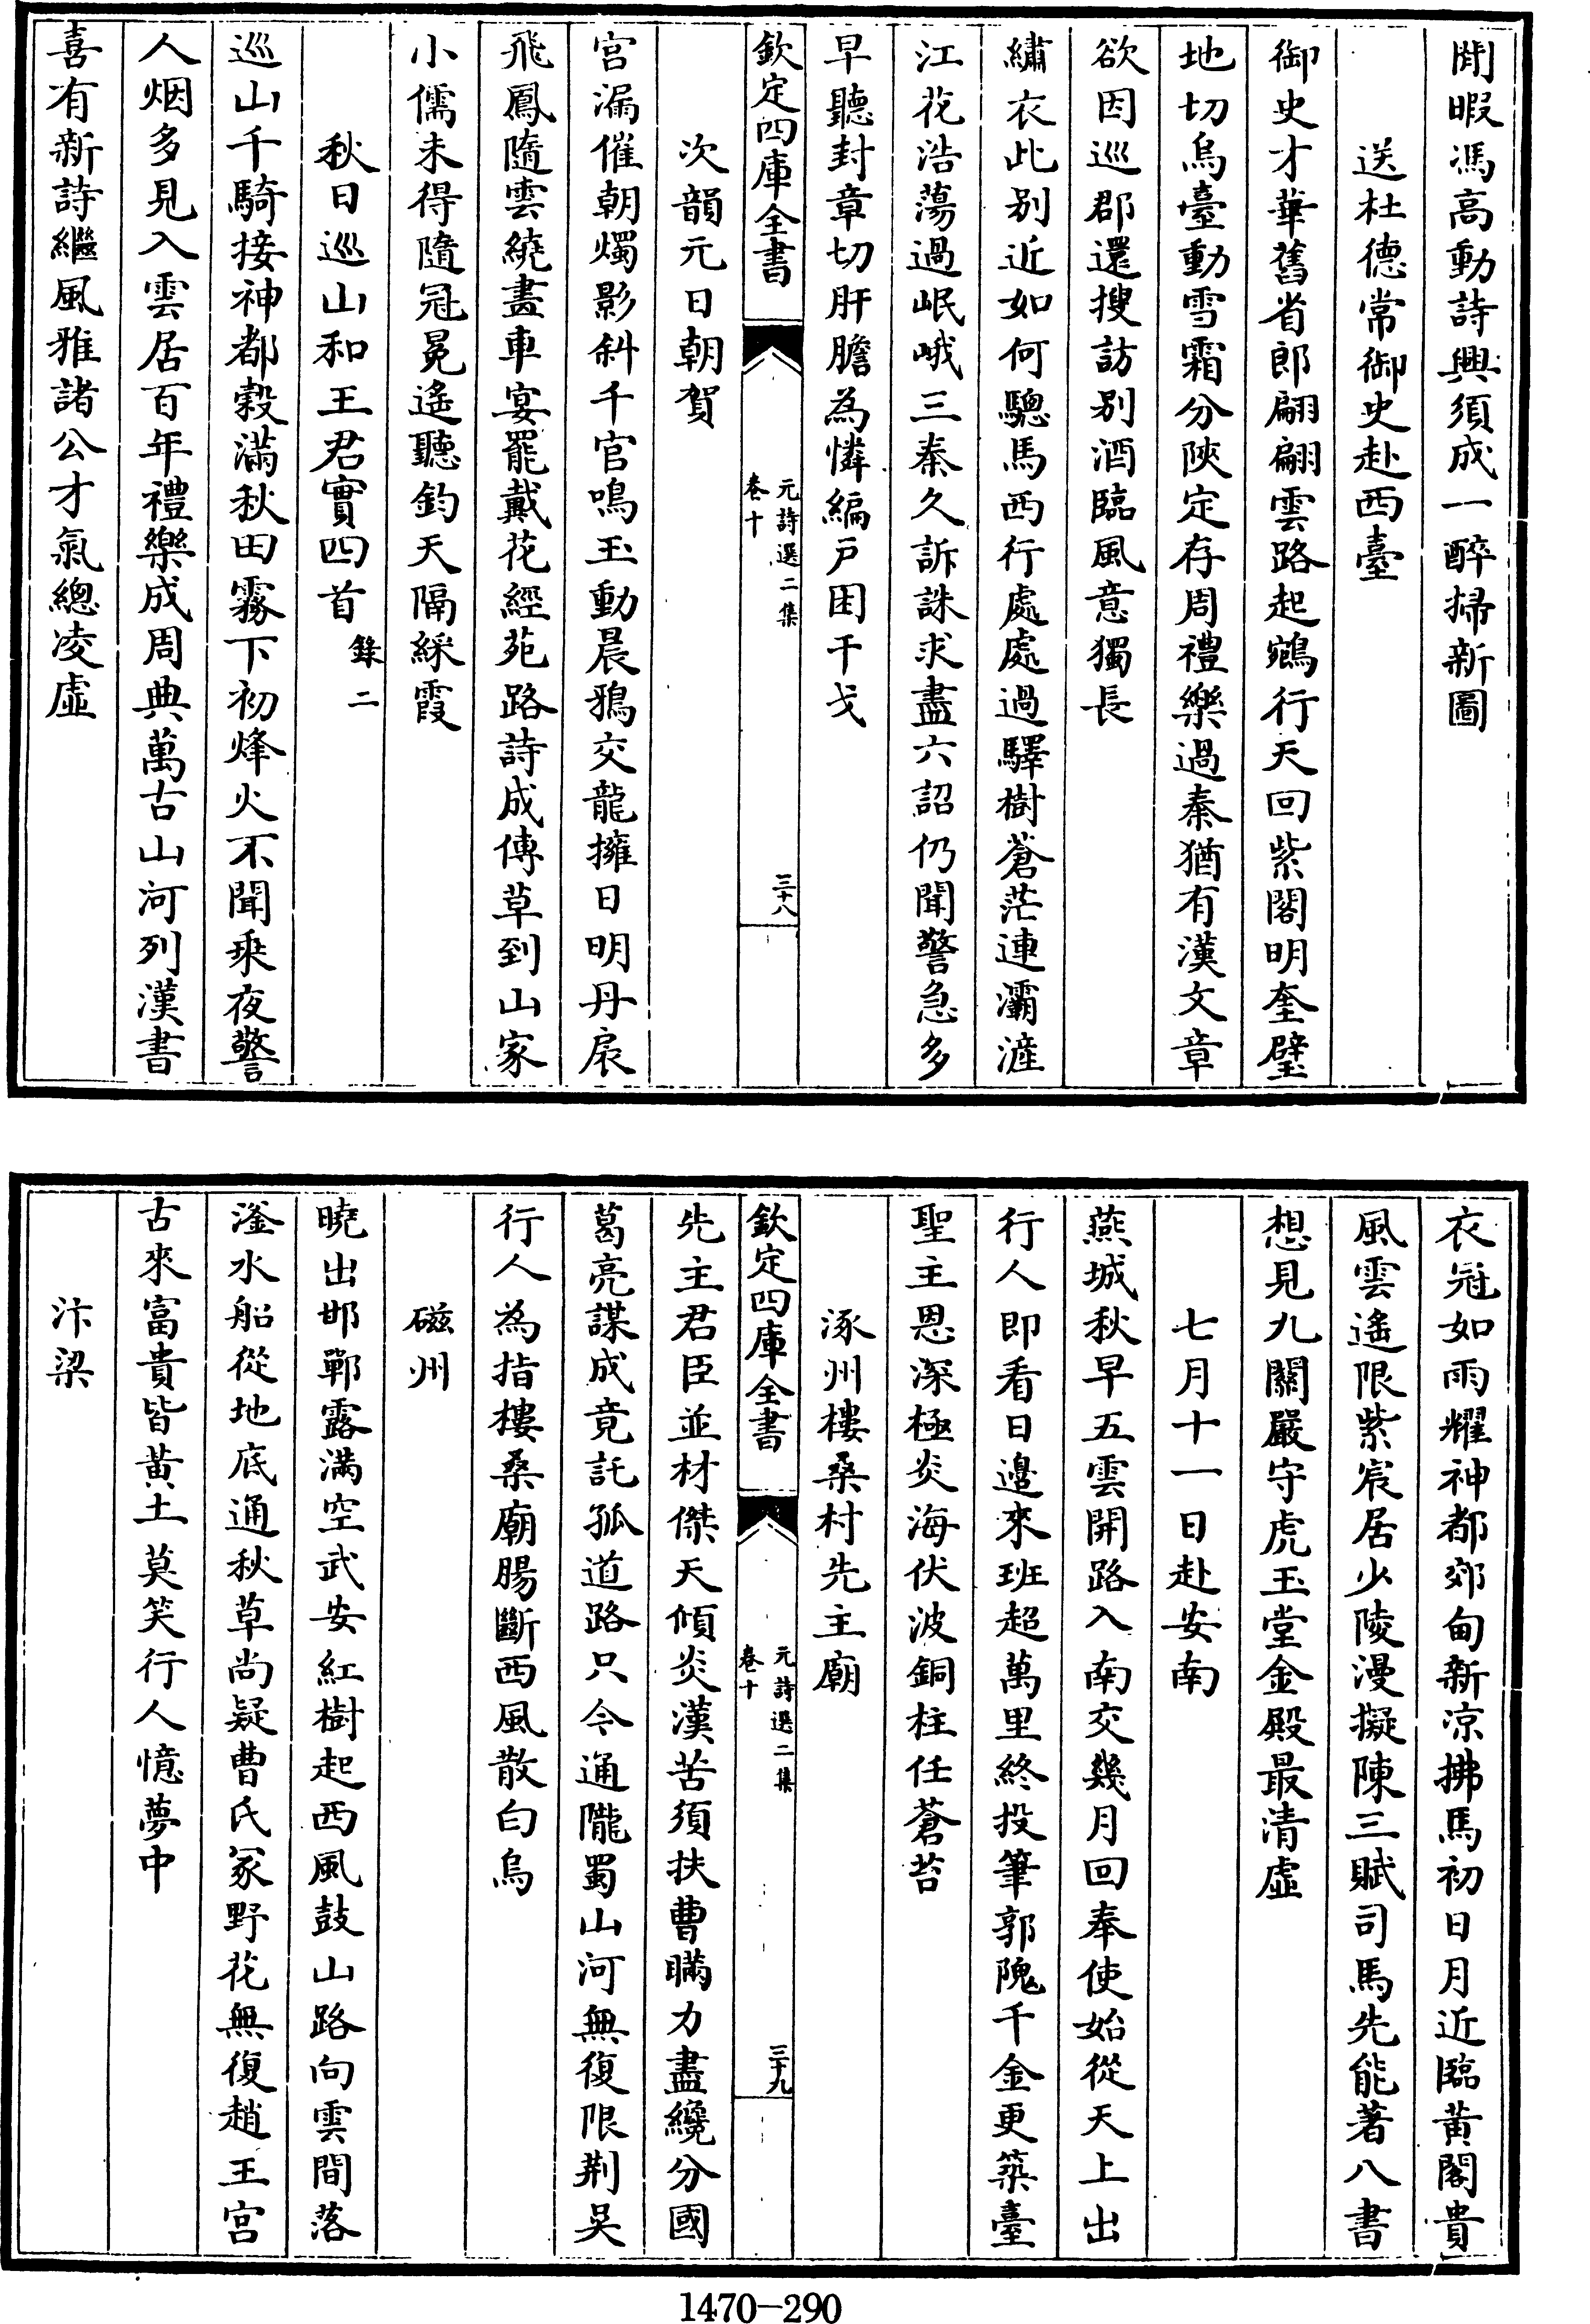 閒暇馮高動詩興須成一醉掃新圖
送杜德常御史赴西臺
御史才華舊省郎翩翩雲路起鵷行天回紫閣明奎璧
地切烏臺動雪霜分陜定存周禮樂過秦猶有漢文章
欲因巡郡還搜訪別酒臨風意獨長
繡衣此別近如何驄馬西行處處過驛樹蒼茫連灞滻
江花浩蕩過岷峨三秦久訴誅求盡六詔仍聞警急多
早聽封章切肝膽為憐編戸困干戈
欽定四庫全書
元詩選二集
卷十
三十八
次韻元日朝賀
宫漏催朝燭影斜千官鳴玉動晨鴉交龍擁日明丹扆
飛鳳隨雲繞畫車宴罷戴花經苑路詩成傳草到山家
小儒未得隨冠冕遙聽鈞天隔綵霞
秋日巡山和王君實四首錄二
巡山千騎接神都榖滿秋田霧下初烽火不聞乗夜警
人烟多見入雲居百年禮樂成周典萬古山河列漢書
喜有新詩繼風雅諸公才氣總凌虛
衣冠如雨耀神都郊甸新凉拂馬初日月近臨黄閣貴
風雲遙限紫宸居少陵漫擬陳三賦司馬先能著八書
想見九關嚴守虎玉堂金殿最清虛
七月十一日赴安南
燕城秋早五雲開路入南交幾月回奉使始從天上出
行人即看日邉來班超萬里終投筆郭隗千金更築臺
聖主恩深極炎海伏波銅柱任蒼苔
涿州樓桑村先主廟
欽定四庫全書
元詩選二集
卷十
三十九
先主君臣並材傑天傾炎漢苦須扶曹瞞力盡纔分國
葛亮謀成竟託孤道路只今通隴蜀山河無復限荆吳
行人為指樓桑廟腸斷西風散白烏
磁州
曉出邯鄲露滿空武安紅樹起西風鼓山路向雲間落
滏水船從地底通秋草尚疑曹氏冢野花無復趙王宫
古來富貴皆黄土莫笑行人憶夢中
汴梁
1470—290